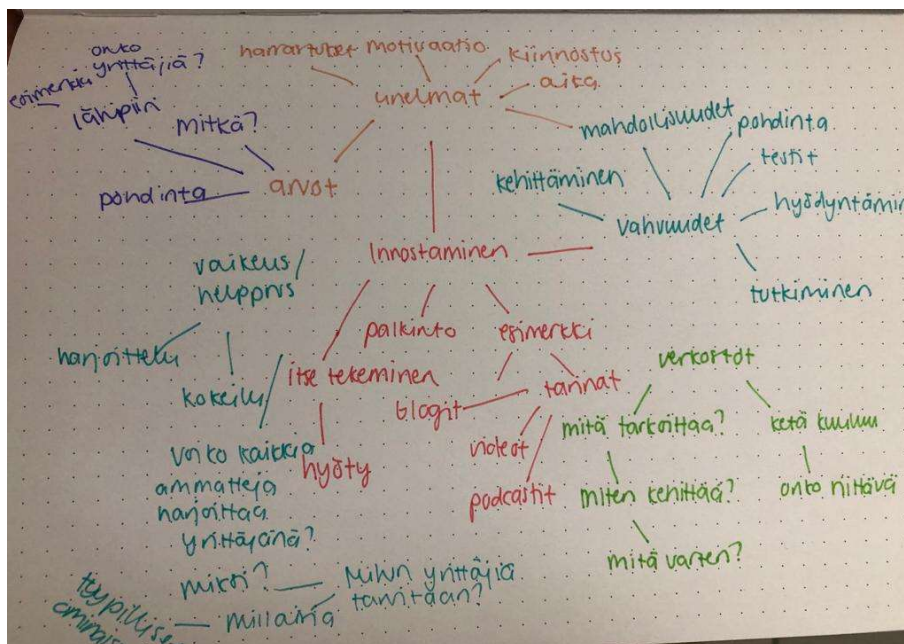 onko
yrittäjiä?
esimerkki
lähipiiri
mitkä?
pohdinta
arvot
harrastukset
motivaatio
kiinnostus
aika
unelmat
mahdollisuudet
pohdinta
testit
kehittäminen
hyödyntämin
vahvuudet
tutkiminen
Innostaminen
vaikeus/
helppous
harjoittelu
kokeilu
palkinto
esimerkki
itse tekeminen
hyöty
tarinat
blogit
videot
podcastit
verkostot
mitä tarkoittaa?
ketä kuuluu
miten kehittää?
onko riittävä
mitä varten?
Voiko kaikkia
ammatteja
harjoittaa
yrittäjänä?
miksi?
Mihin yrittäjiä
tarvitaan?
millaisia